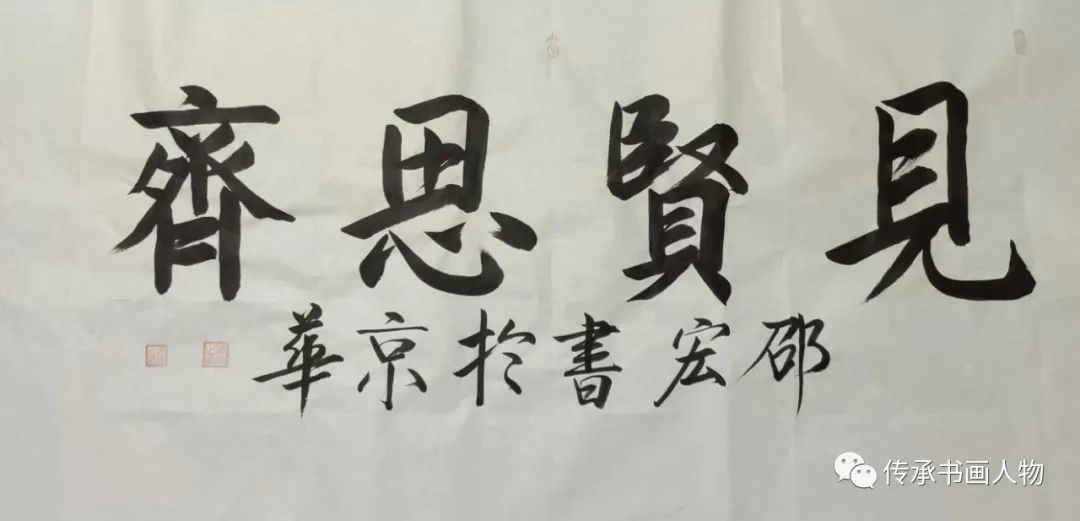 見賢思齊
邵宏書於京華
传承书画人物